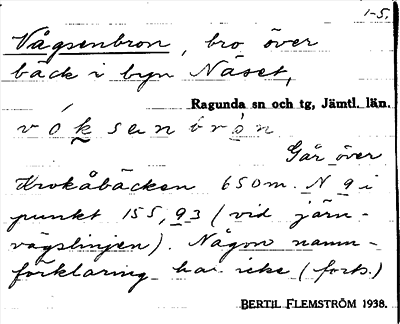 1-5.
Vågsenbron, bro över
bäck i byn Näset,
Ragunda sn och tg, Jämtl. län.
vók senbròn
Går över
Krokåbäcken 650 m. N 9 i
punkt 155,93 (vid järn-
vägslinjen). Någon namn-
förklaring har icke (forts.)
BERTIL FLEMSTRÖM 1938.